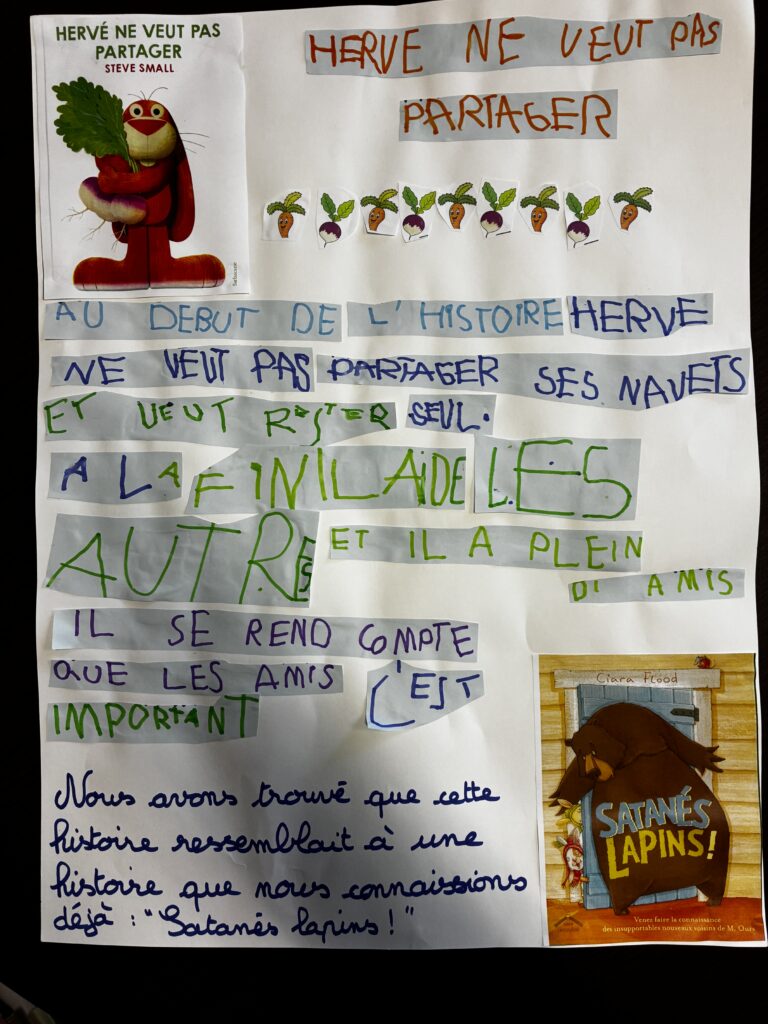 HERVÉ NE VEUT PAS
PARTAGER
STEVE SMALL
HERVE NE VEUT PAS
PARTAGER
AU DEBUT DE L'HISTOIRE HERVE
NE VEUT PAS PARTAGER SES NAVETS
ET VEUT RESTER SEUL.
A LA FIN IL AIDE LES
AUTRES ET IL A PLEIN
D' AMIS
IL SE REND COMPTE
QUE LES AMIS C'EST
IMPORTANT
Ciara Flood
SATANÉS
LAPINS!
Venez faire la connaissance
des insupportables nouveaux voisins de M. Ours
Nous avons trouvé que cette
histoire ressemblait à une
histoire que nous connaissions
déjà : "Satanés lapins !"